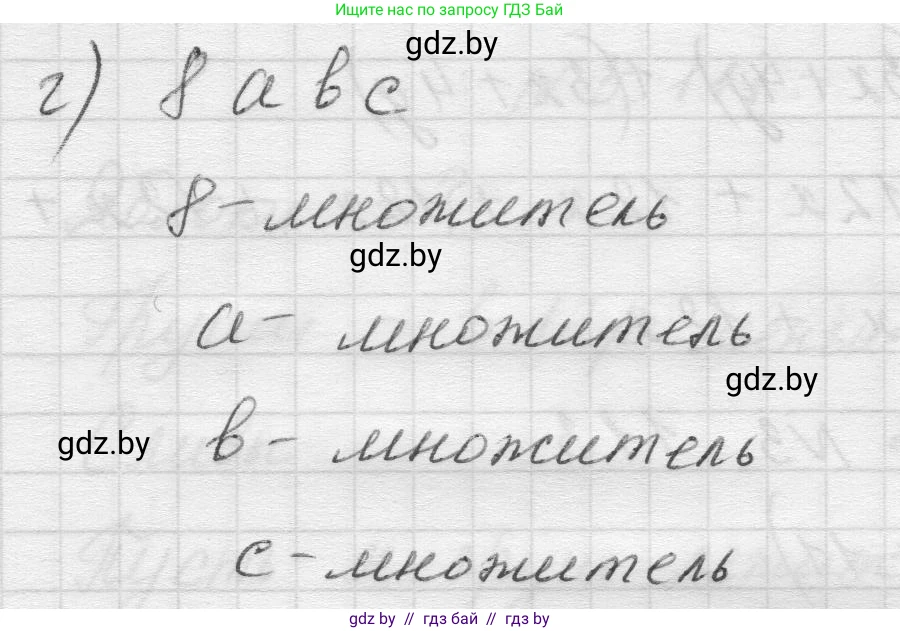 Ищите нас по запросу ГДЗ Бай
gdz.by
г) 8 а в с
8 - множитель
gdz.by
а - множитель
gdz.by
gdz.by
в - множитель
с - множитель
gdz.by // гдз бай // gdz.by